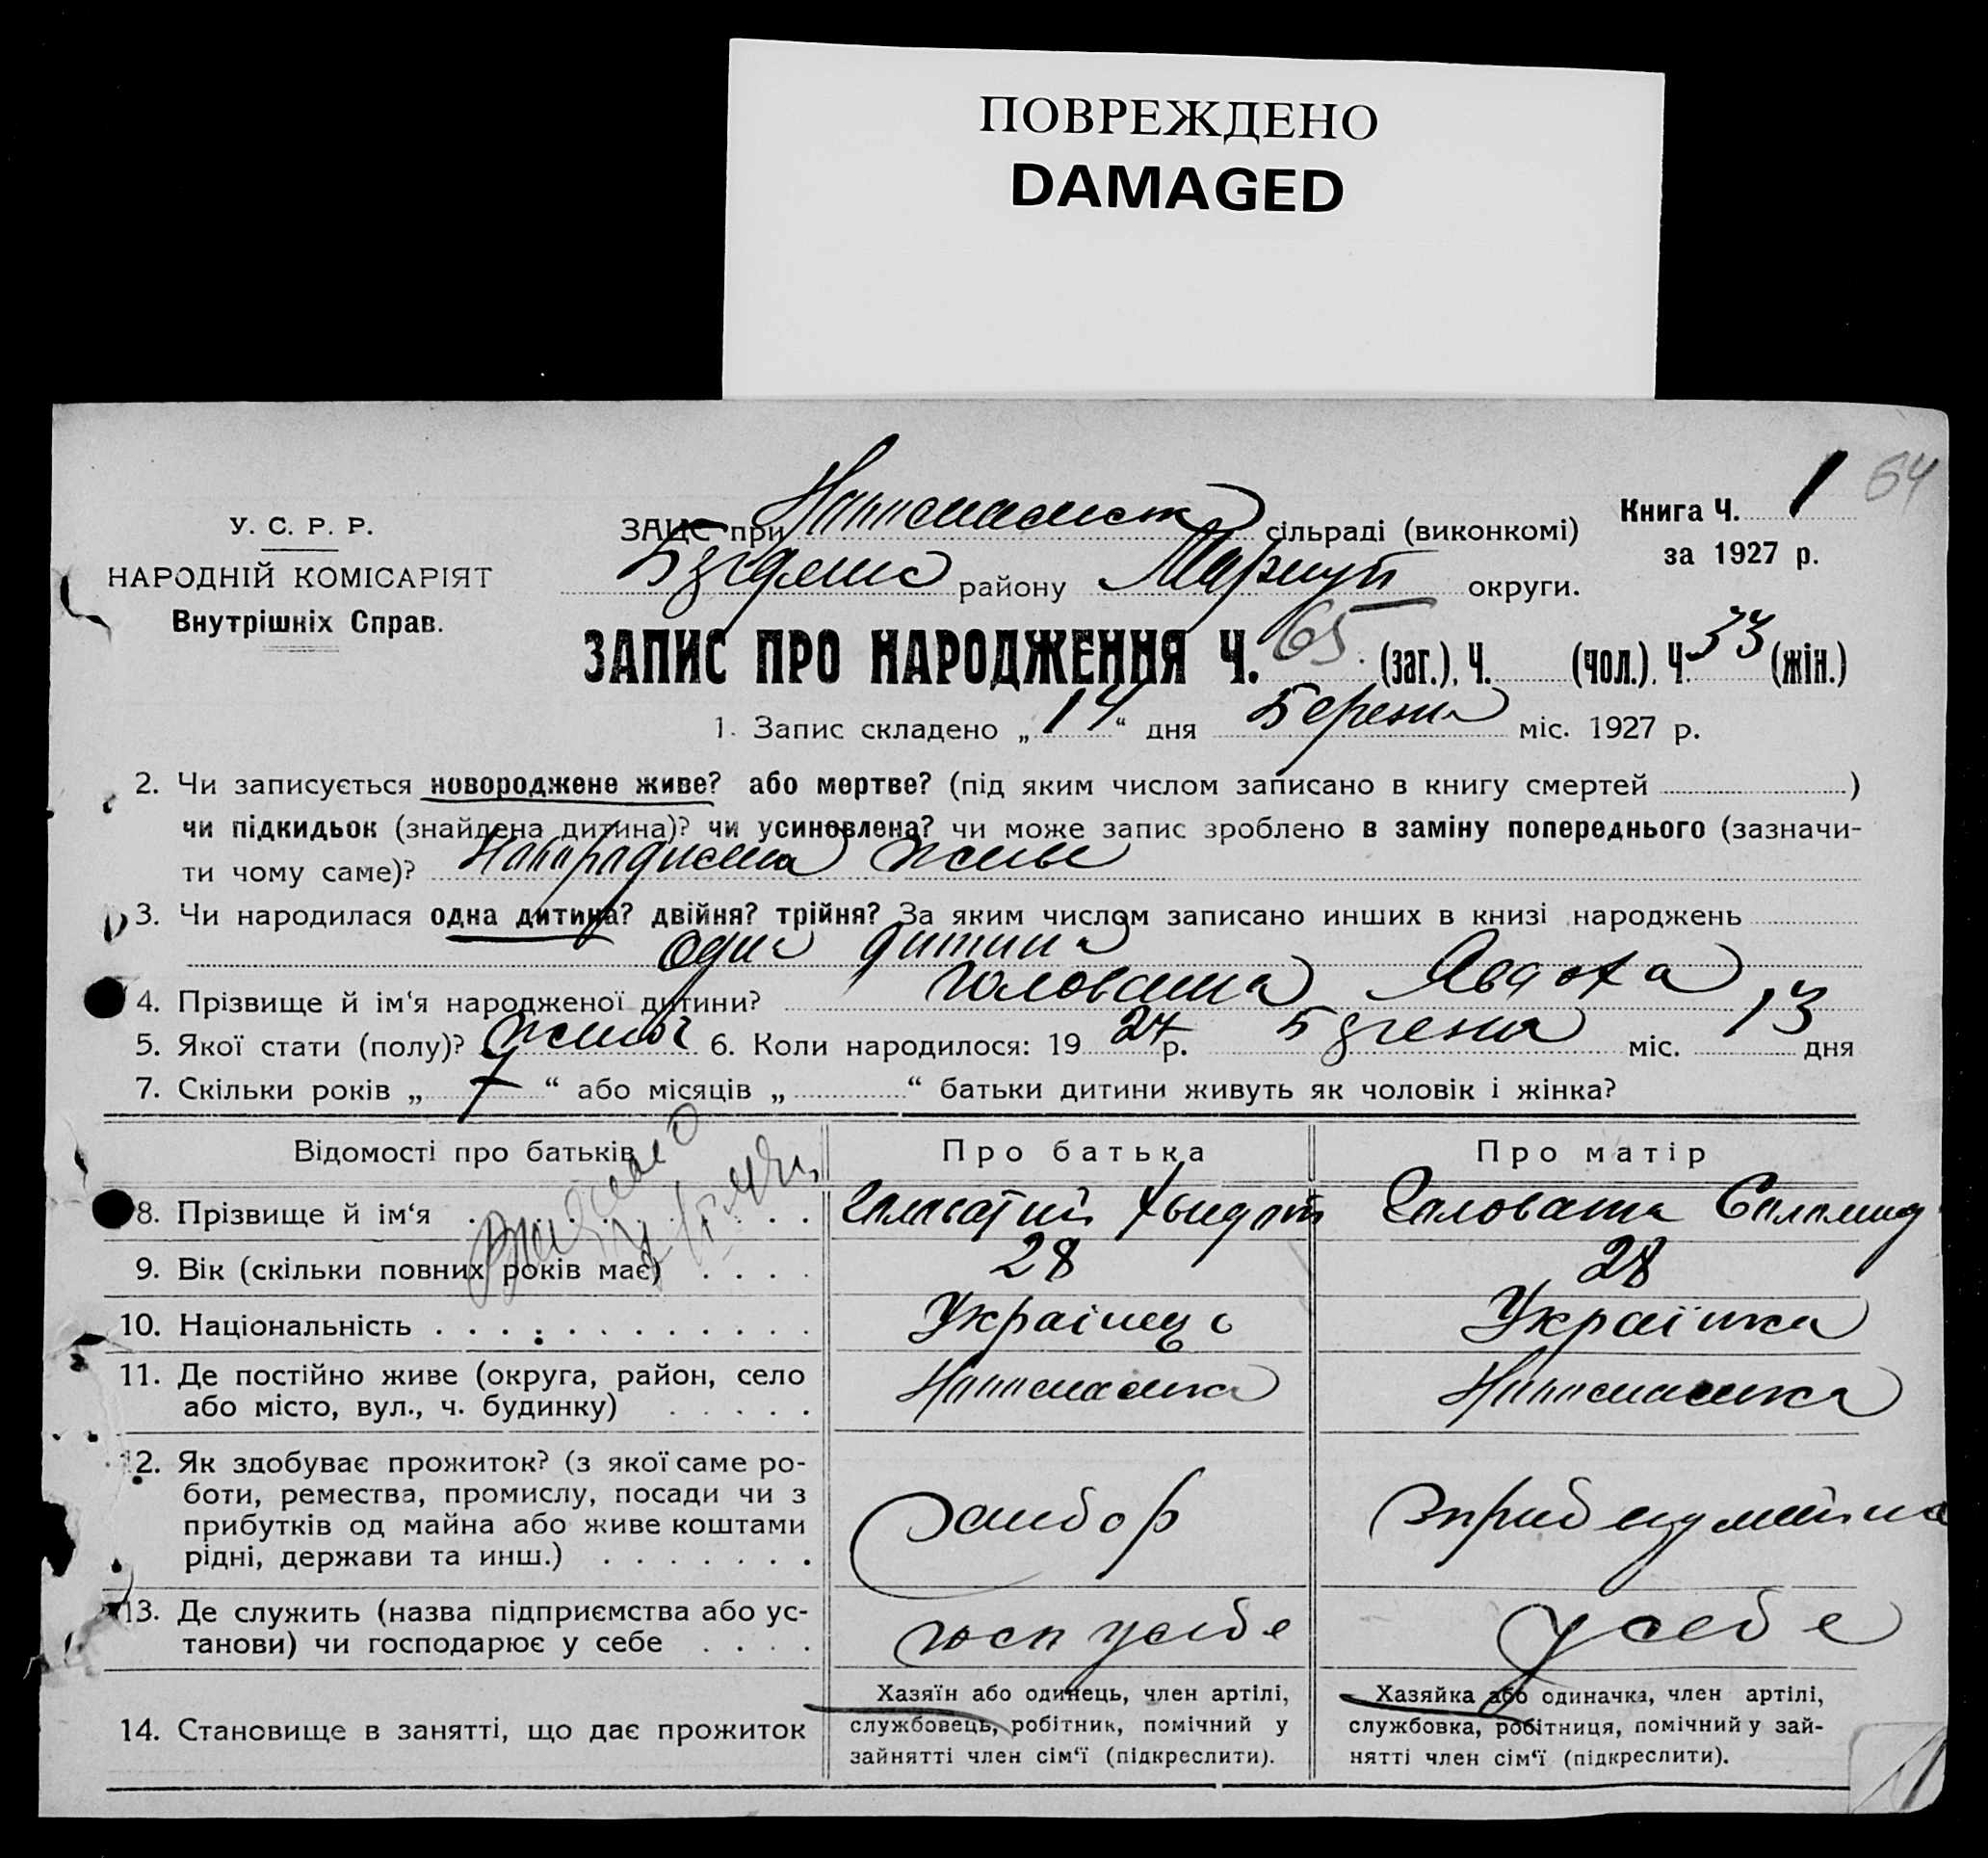 ПОВРЕЖДЕНО
DAMAGED
У. С. Р. Р.
НАРОДНІЙ КОМІСАРІЯТ
Внутрішніх Справ.
ЗАЦС при сільраді (виконкомі)
району Маріуп округи.
Книга Ч. 1 64
за 1927 р.
ЗАПИС ПРО НАРОДЖЕННЯ Ч. 65 (заг.), Ч. (чол.), Ч. 33 (жін.)
1. Запис складено „14“ дня Березня міс. 1927 р.
2. Чи записується новороджене живе? або мертве? (під яким числом записано в книгу смертей )
чи підкидьок (знайдена дитина)? чи усиновлена? чи може запис зроблено в заміну попереднього (зазначи-
ти чому саме)?
3. Чи народилася одна дитина? двійня? трійня? За яким числом записано инших в книзі народжень
одна дитина
4. Прізвище й ім‘я народженої дитини? Головата Явдоха
5. Якої стати (полу)? 6. Коли народилося: 1927 р. Березня міс. 13 дня
7. Скільки років „7“ або місяців „ “ батьки дитини живуть як чоловік і жінка?
Відомості про батьків
Про батька
Про матір
8. Прізвище й ім‘я Головата
9. Вік (скільки повних років має) 28 28
10. Національність Українець Українка
11. Де постійно живе (округа, район, село
або місто, вул., ч. будинку)
12. Як здобуває прожиток? (з якої саме ро-
боти, ремества, промислу, посади чи з
прибутків од майна або живе коштами
рідні, держави та инш.)
хлібор
13. Де служить (назва підприємства або ус-
танови) чи господарює у себе
госп у себе
у себе
14. Становище в занятті, що дає прожиток
Хазяїн або одинець, член артілі,
службовець, робітник, помічний у
зайнятті член сім‘ї (підкреслити).
Хазяйка або одиначка, член артілі,
службовка, робітниця, помічний у зай-
нятті член сім‘ї (підкреслити).